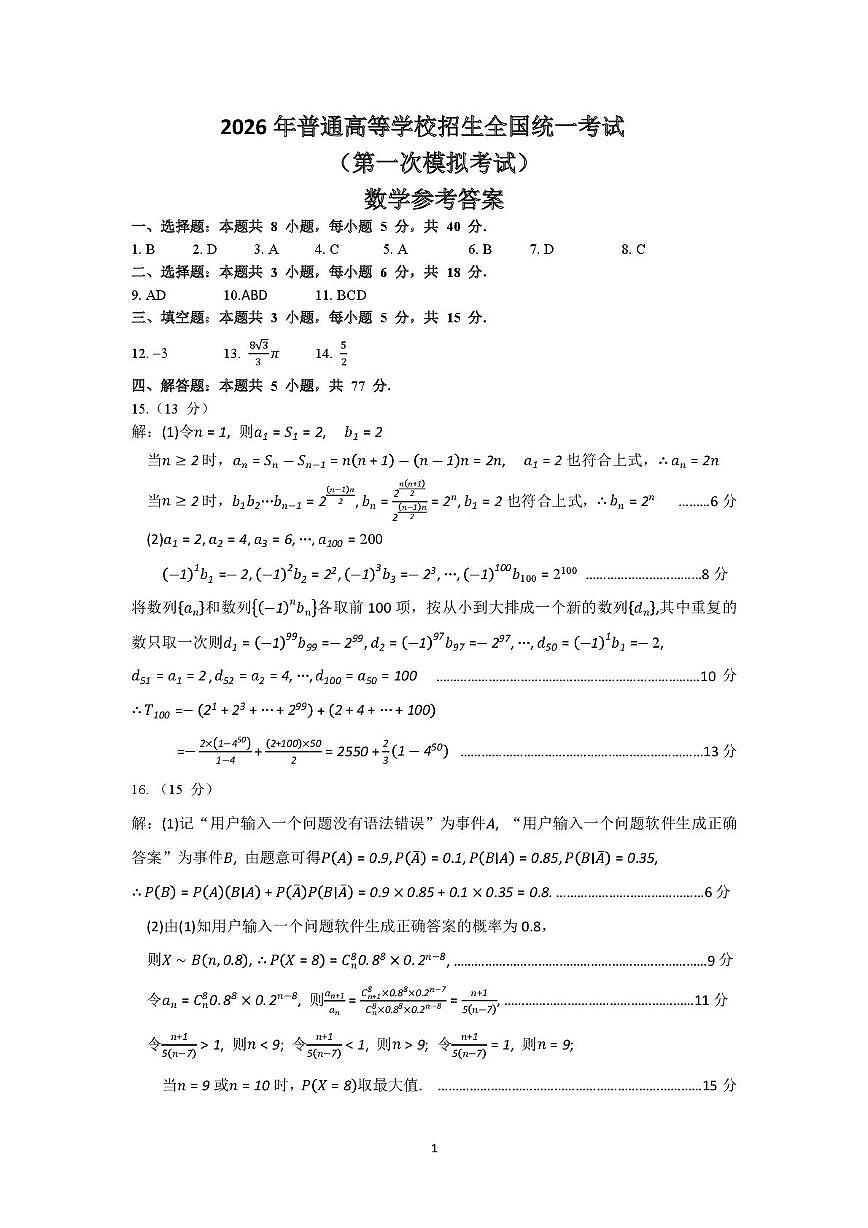 2026 年普通高等学校招生全国统一考试
（第一次模拟考试）
数学参考答案
一、选择题：本题共 8 小题，每小题 5 分，共 40 分．
1. B 2. D 3. A 4. C 5. A 6. B 7. D 8. C
二、选择题：本题共 3 小题，每小题 6 分，共 18 分．
9. AD 10.ABD 11. BCD
三、填空题：本题共 3 小题，每小题 5 分，共 15 分．
12. −3 13. \frac{8\sqrt{3}}{3}π 14. \frac{5}{2}
四、解答题：本题共 5 小题，共 77 分．
15.（13 分）
解：(1)令n = 1，则a_1 = S_1 = 2， b_1 = 2
当n ≥ 2时，a_n = S_n − S_{n−1} = n(n + 1) − (n − 1)n = 2n， a_1 = 2 也符合上式，∴ a_n = 2n
当n ≥ 2时，b_1b_2⋯b_{n−1} = 2^{\frac{(n−1)n}{2}}, b_n = \frac{2^{\frac{n(n+1)}{2}}}{2^{\frac{(n−1)n}{2}}} = 2^n, b_1 = 2 也符合上式，∴ b_n = 2^n ………6 分
(2)a_1 = 2, a_2 = 4, a_3 = 6, ⋯, a_{100} = 200
(−1)^1b_1 =− 2, (−1)^2b_2 = 2^2, (−1)^3b_3 =− 2^3, ⋯, (−1)^{100}b_{100} = 2^{100} ……………………………8 分
将数列{a_n}和数列{(−1)^nb_n}各取前 100 项，按从小到大排成一个新的数列{d_n},其中重复的
数只取一次则d_1 = (−1)^{99}b_{99} =− 2^{99}, d_2 = (−1)^{97}b_{97} =− 2^{97}, ⋯, d_{50} = (−1)^1b_1 =− 2,
d_{51} = a_1 = 2 , d_{52} = a_2 = 4, ⋯, d_{100} = a_{50} = 100 …………………………………………………………………10 分
∴ T_{100} =− (2^1 + 2^3 + ⋯ + 2^{99}) + (2 + 4 + ⋯ + 100)
=− \frac{2×(1−4^{50})}{1−4} + \frac{(2+100)×50}{2} = 2550 + \frac{2}{3}(1 − 4^{50}) ……………………………………………………………13 分
16. （15 分）
解：(1)记“用户输入一个问题没有语法错误”为事件A，“用户输入一个问题软件生成正确
答案”为事件B，由题意可得P(A) = 0.9, P(\bar{A}) = 0.1, P(B|A) = 0.85, P(B|\bar{A}) = 0.35,
∴ P(B) = P(A)(B|A) + P(\bar{A})P(B|\bar{A}) = 0.9 × 0.85 + 0.1 × 0.35 = 0.8. ……………………………………6 分
(2)由(1)知用户输入一个问题软件生成正确答案的概率为 0.8，
则X ~ B(n, 0.8), ∴ P(X = 8) = C_n^8 0.8^8 × 0.2^{n−8}, ………………………………………………………………9 分
令a_n = C_n^8 0.8^8 × 0.2^{n−8}，则\frac{a_{n+1}}{a_n} = \frac{C_{n+1}^8×0.8^8×0.2^{n−7}}{C_n^8×0.8^8×0.2^{n−8}} = \frac{n+1}{5(n−7)}, ………………………………………………11 分
令\frac{n+1}{5(n−7)} > 1，则n < 9；令\frac{n+1}{5(n−7)} < 1，则n > 9；令\frac{n+1}{5(n−7)} = 1，则n = 9;
当n = 9 或n = 10 时，P(X = 8)取最大值． …………………………………………………………………15 分
1